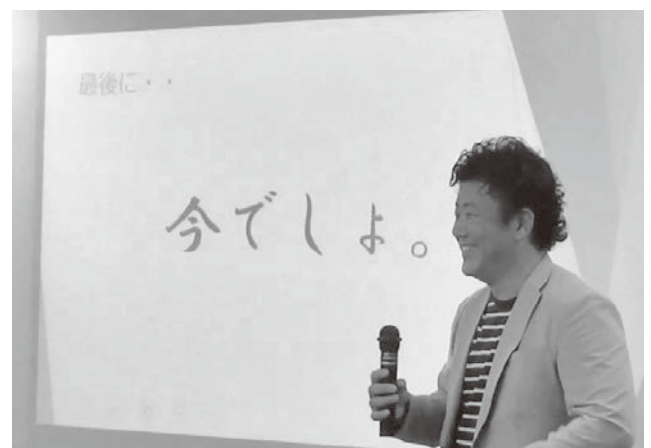 最後に・・
今でしょ。